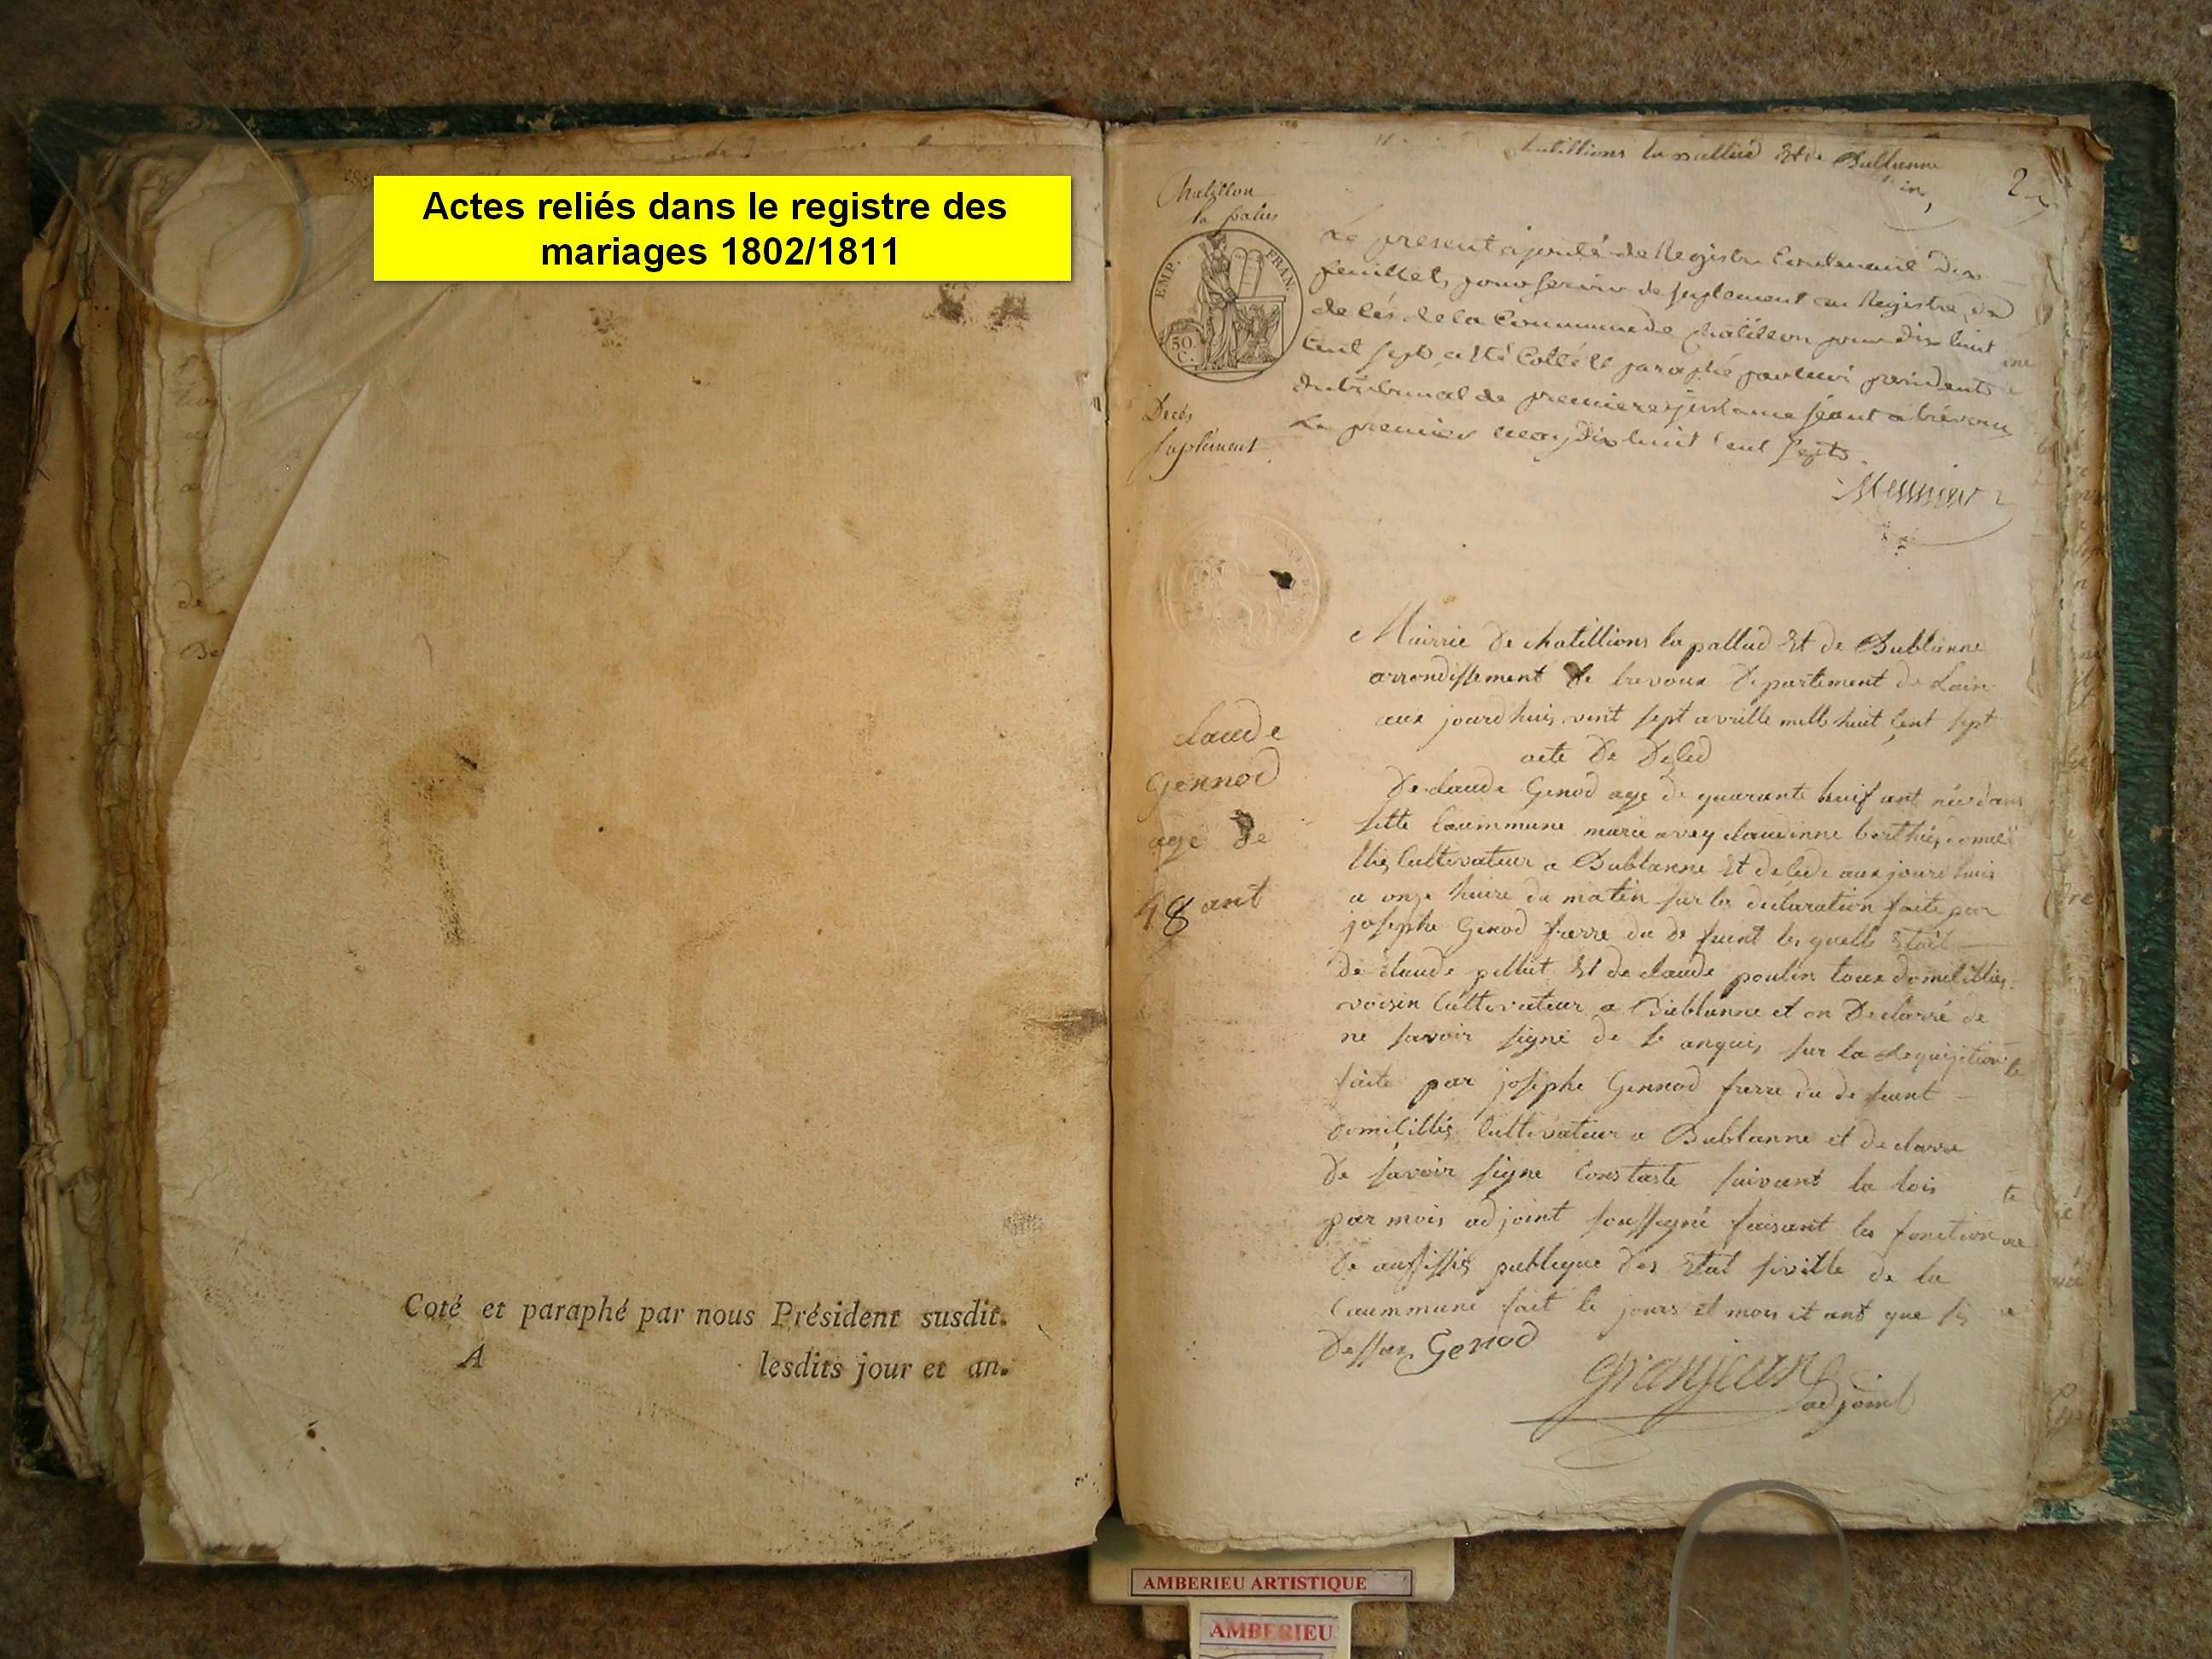 Actes reliés dans le registre des
mariages 1802/1811
Coté et paraphé par nous Président susdit.
A lesdits jour et an.
Et de Bublanne
2
Chatillon
la palus
EMP. FRAN.
50.
C.
Decés
Suplément
Le present ajouté de Registre Contenant dix
feuillets pour servir de suplement au Registre de
de la Commune de Chatillon pour dix huit
Cent sept a été Collé et paraphé par nous president
du tribunal de premiere instance séant a trévoux
Le premier may dix huit Cent Sept
Mairrie De chatillions la pallud Et de Bublanne
arrondissement De trevoux Departement de Lain
aux jourdhuis vint sept avrille mille huit Cent sept
acte De Deled
De claude Genod age de quarante huif ant née dans
sette Coummune marie avey claudinne
Cultivateur a Bublanne Et delede aux jourd huis
a onze huire du matin sur la déclaration faite par
josephe Genod frerre du de funt les quelle Etait
de claude pellut Et de claude poulin toux domcillies
voisin Cultivateur a Bublanne et on Declarré de
ne savoir signé de se anquis sur la Requisition
faite par josephe Gennod frerre du de funt
domicilliés Cultivateur a Bublanne et declarre
De savoir signe Constaste suivant la lois
par mois adjoint soussigné faisant les fonction
De auffissié publique Des Etat siville de la
Coummune fait le jours et mois et ant que sis
Dessus Genod
granjean
adjoint
claude
Gennod
age De
48 ant
AMBERIEU ARTISTIQUE
AMBERIEU